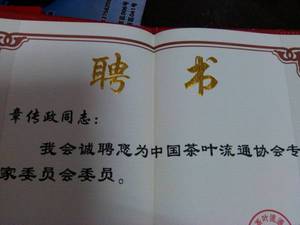 聘书
章传政同志：
我会诚聘您为中国茶叶流通协会专
家委员会委员。
茶叶流通